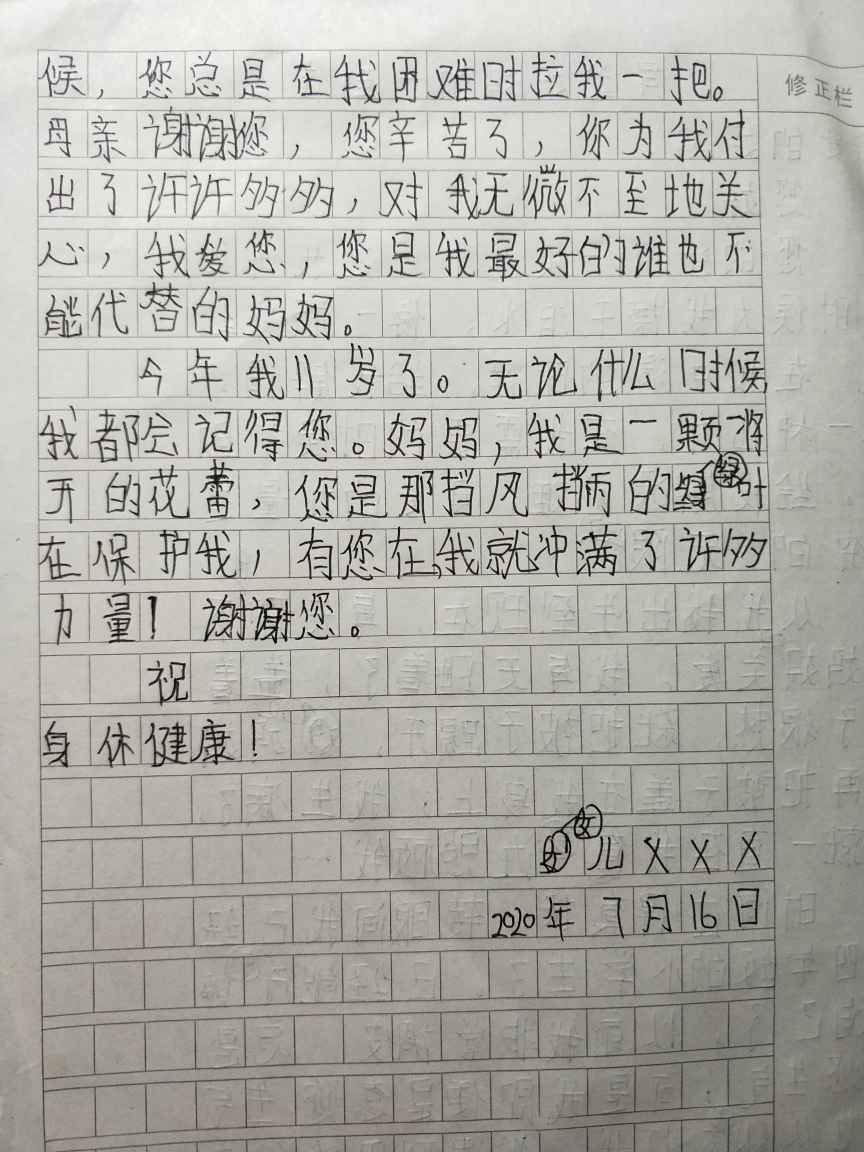 候，您总是在我困难时拉我一把。
修正栏
母亲谢谢您，您辛苦了，你为我付
出了许许多多，对我无微不至地关
心，我爱您，您是我最好的谁也不
能代替的妈妈。
今年我11岁了。无论什么时候
我都会记得您。妈妈，我是一颗将
开的花蕾，您是那挡风挡雨的绿叶
在保护我，有您在，我就冲满了许多
力量！谢谢您。
祝
身休健康！
女儿XXX
2020年7月16日